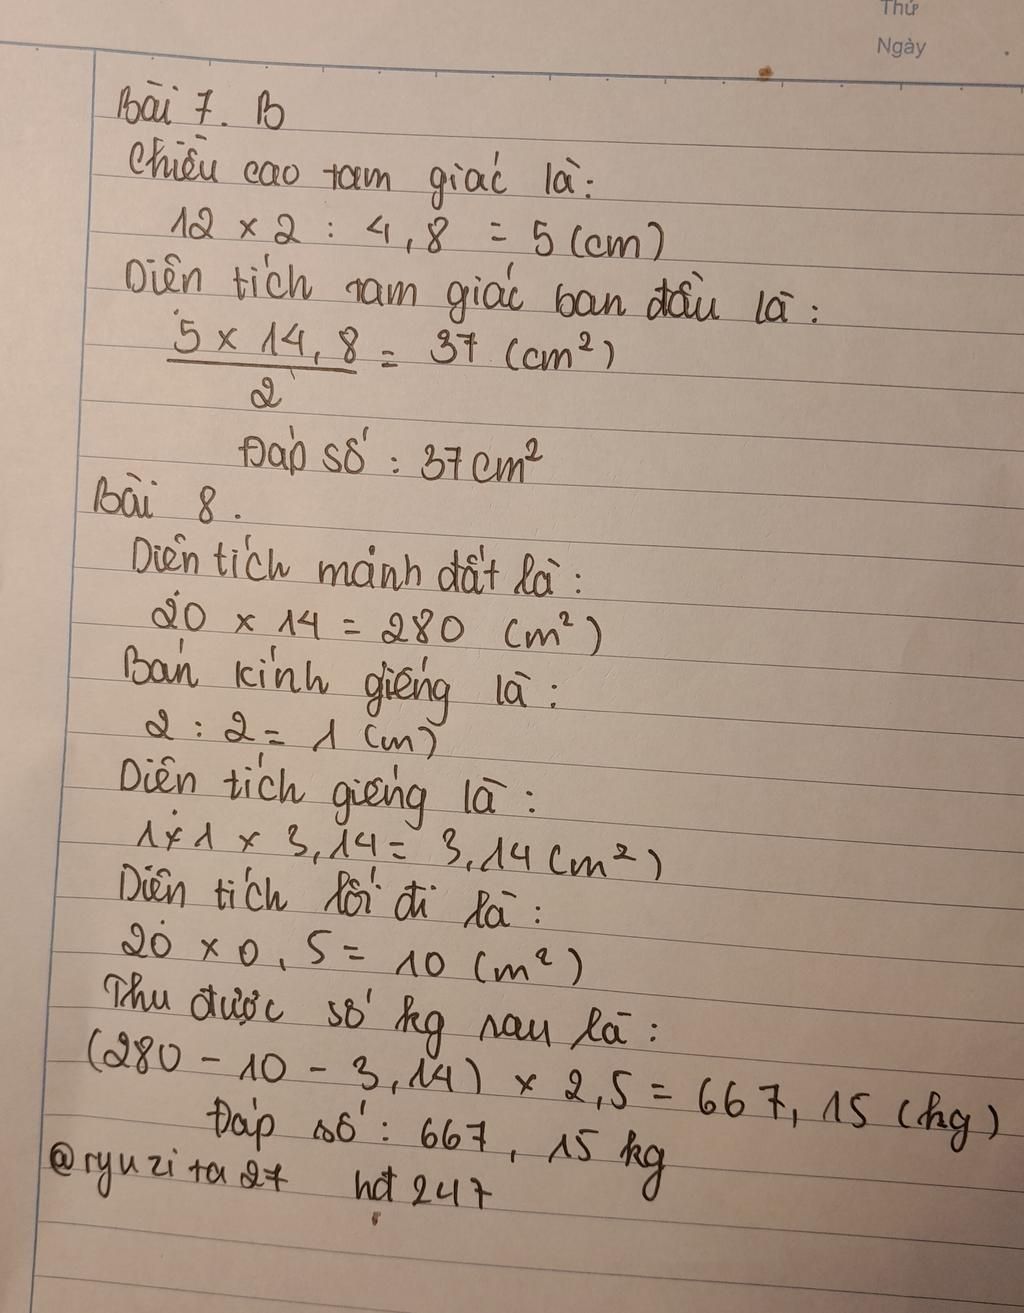 Thứ
Ngày
Bài 7. B
Chiều cao tam giác là:
12 × 2 : 4,8 = 5 (cm)
Diện tích tam giác ban đầu là:
5 × 14,8 / 2 = 37 (cm²)
Đáp số : 37cm²
Bài 8.
Diện tích mảnh đất là:
20 × 14 = 280 (m²)
Bán kính giếng là:
2 : 2 = 1 (m)
Diện tích giếng là:
1×1 × 3,14 = 3,14 (m²)
Diện tích lối đi là:
20 × 0,5 = 10 (m²)
Thu được số kg rau là:
(280 - 10 - 3,14) × 2,5 = 667,15 (kg)
Đáp số: 667,15 kg
@ryuzita27 hđ 247